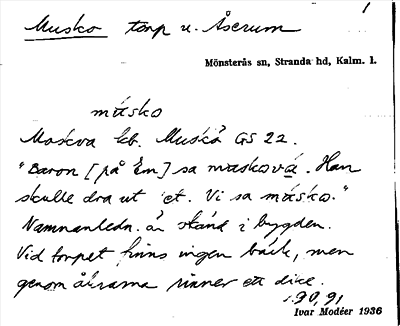 1
Musko torp u. Åserum
Mönsterås sn, Stranda hd, Kalm. l.
måsko
Moskva kb. Muskå GS 22.
"Baron [på Em] sa masková. Han
skulle dra ut 'et. Vi sa måsko."
Namnanledn. är okänd i bygden.
Vid torpet finns ingen bäck, men
genom åkrarna rinner ett dike.
90, 91
Ivar Modéer 1936